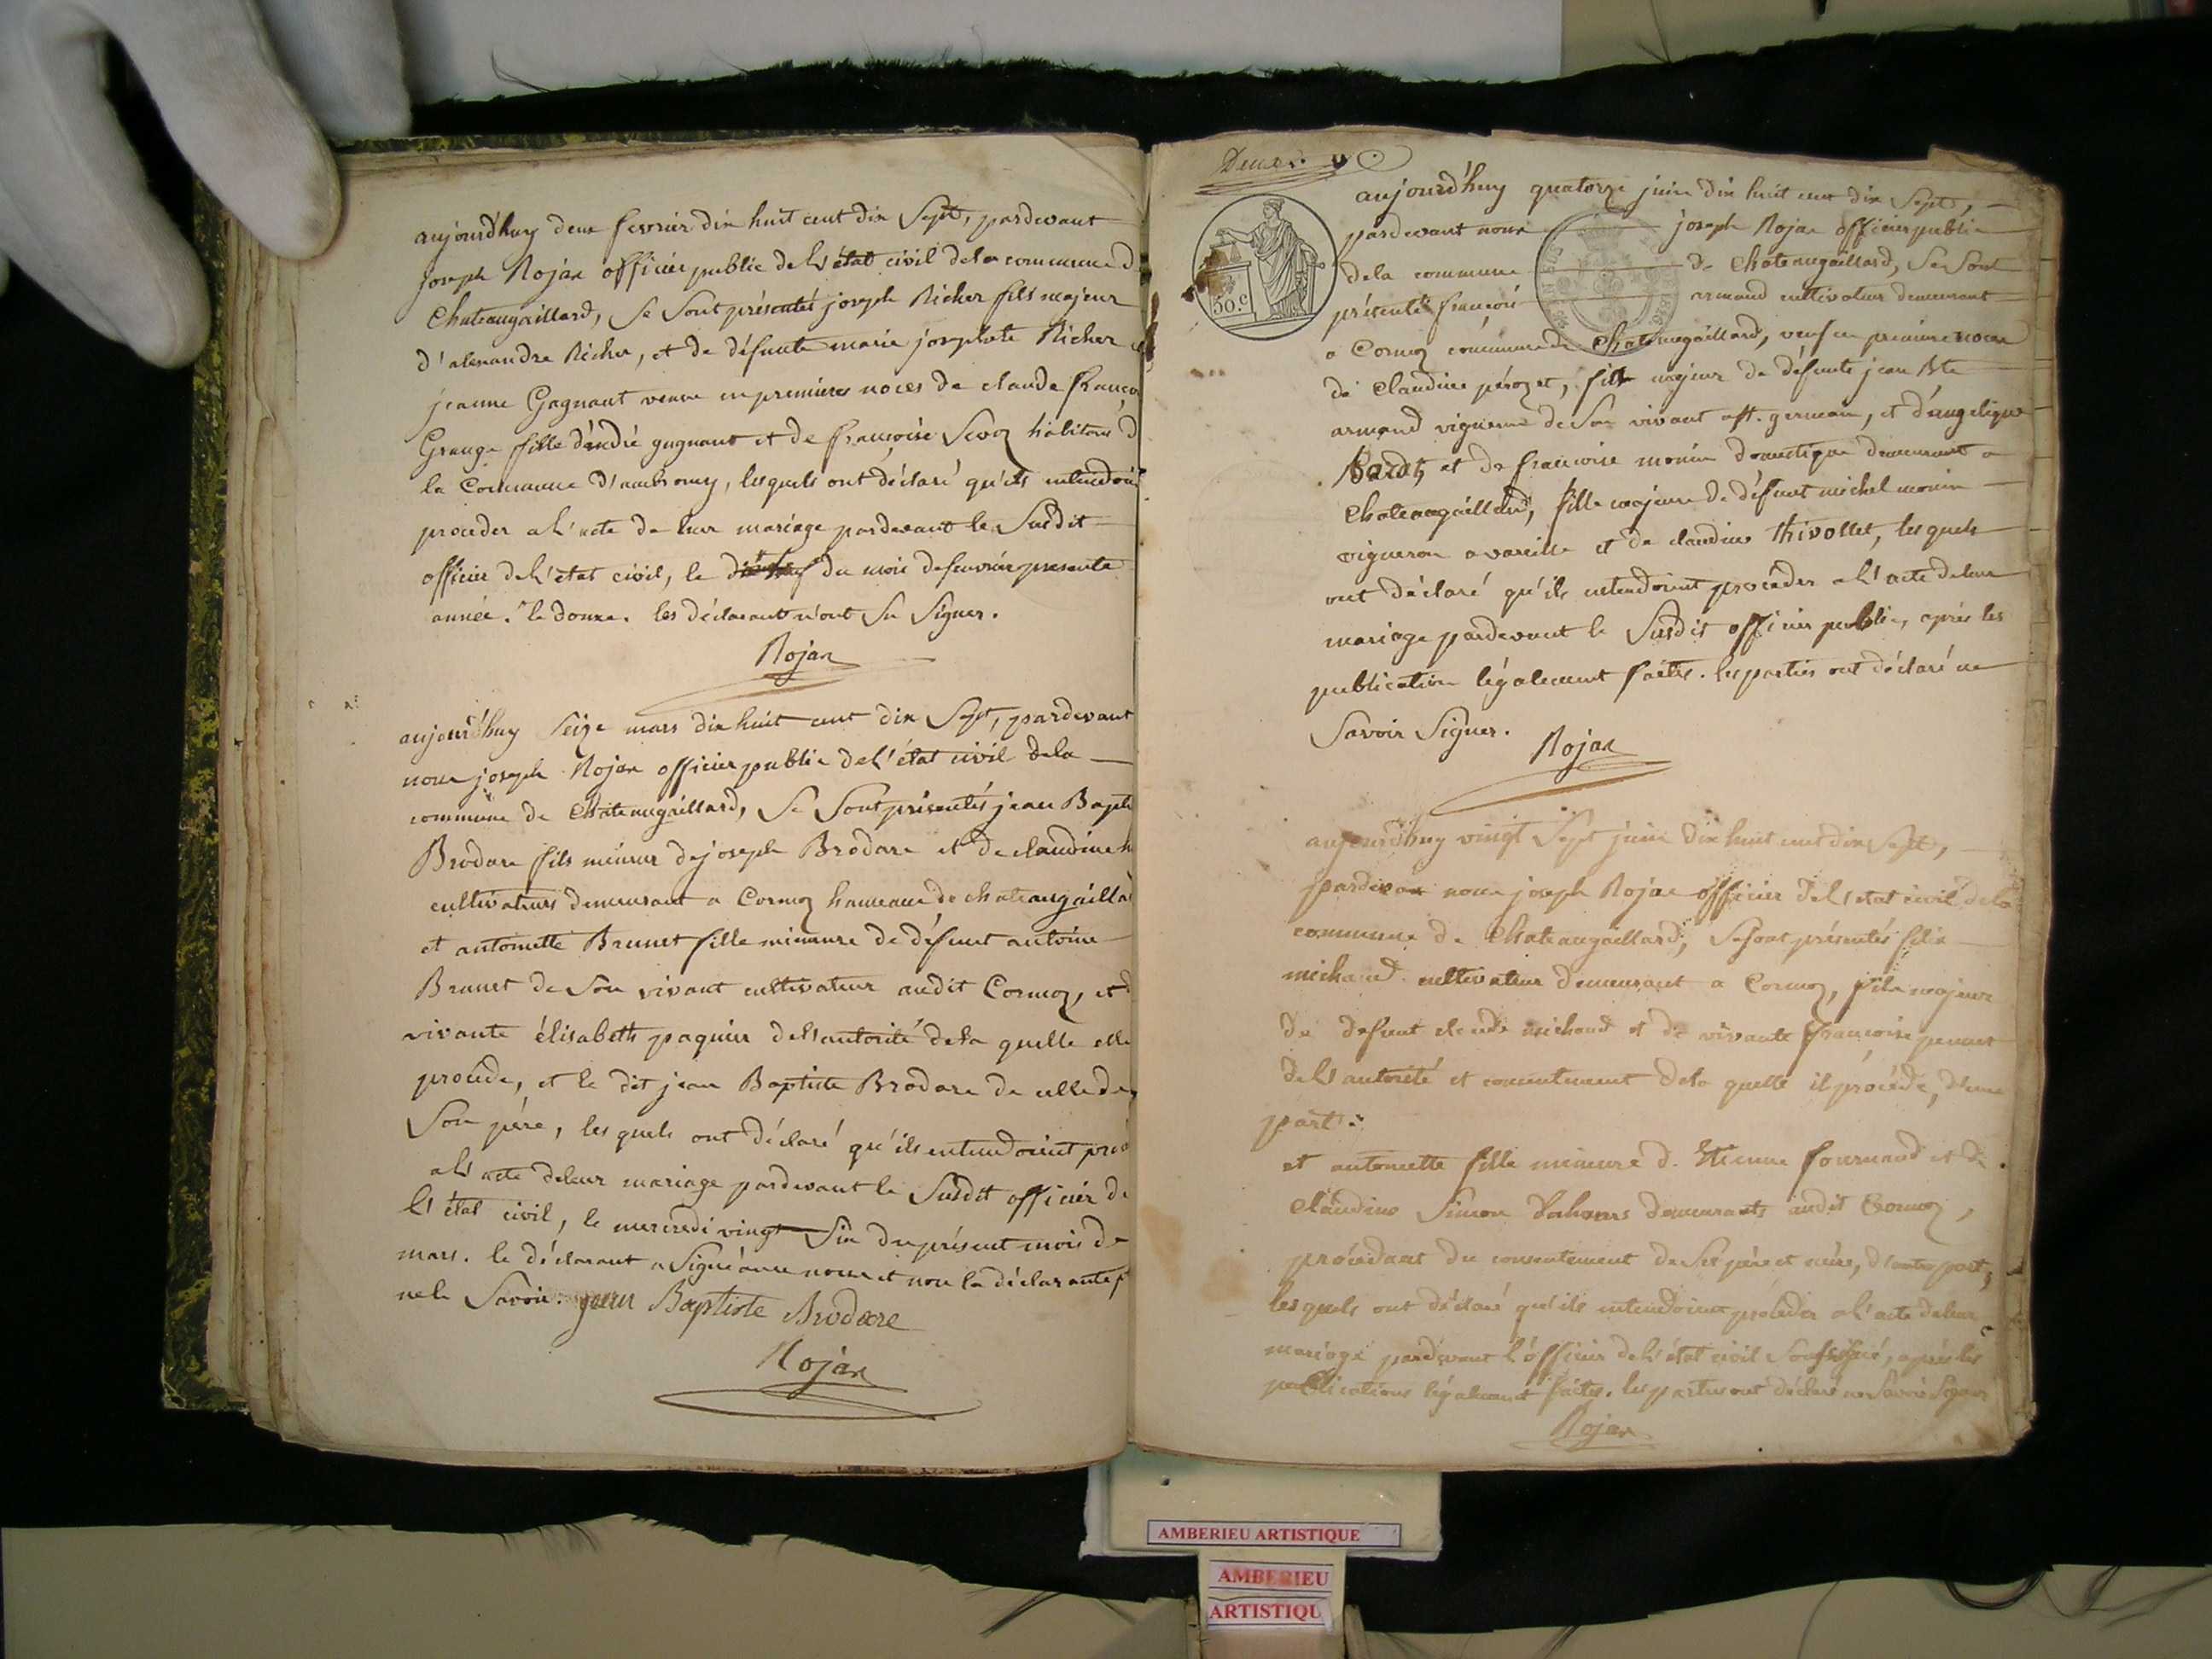 aujourd'huy deux fevrier dix huit cent dix Sept, pardevant
joseph Rojar officier public de l'état civil de la commune d
Chateaugaillard, Se Sont présentés joseph Richer fils majeur
d'alexandre Richer, et de défunte marie josephte Richer
jeanne Gagnant veuve en premieres noces de claude françoi
Grange fille d'andré gagnant et de françoise Sevoz habitans d
la Commune d'ambronay, lesquels ont déclaré qu'ils entendoi
proceder a l'acte de leur mariage pardevant le Susdit
officier de l'état civil, le du mois de fevrier presente
année. le douze. les déclarant n'ont Su Signer.
Rojar
aujourd'huy Seize mars dix huit cent dix Sept, pardevant
nous joseph Rojar officier public de l'état civil de la
commune de Chateaugaillard, Se Sont présentés jean Bapti
Brodare fils mineur de joseph Brodare et de claudine
cultivateurs demeurant a Cormoz hameau de chateaugaillar
et antoinette Brunet fille mineure de défunt antoine
Brunet de Son vivant cultivateur audit Cormoz, et d
vivante élisabeth paquier de l'autorité de la quelle elle
procède, et le dit jean Baptiste Brodare de celle de
Son père, les quels ont déclaré qu'ils entendoient proc
a l'acte de leur mariage pardevant le Susdit officier de
l'état civil, le mercredi vingt Six du présent mois de
mars. le déclarant a Signé avec nous et non la déclarante p
ne le Savoir. jean Baptiste Brodare
Rojar
aujourd'huy quatorze juin dix huit cent dix Sept,
pardevant nous joseph Rojar officier public
de la commune de Chateaugaillard, Se Sont
présentés françois armand cultivateur demeurant
a Cormoz commune de Chateaugaillard, veuf en premiere noces
de Claudine pérozet, fils majeur de défunts jean Bte
armand vigneron de Son vivant a St. germain, et d'angelique
et de francoise monin domestique demeurant a
Chateaugaillard, fille majeure de défunt michel monin
vigneron a vareille et de claudine thivollet, les quels
ont déclaré qu'ils entendoient proceder a l'acte de leur
mariage pardevant le Susdit officier public, après les
publication légalement faites. les parties ont déclaré ne
Savoir Signer.
Rojar
30.c
aujourd'huy vingt Sept juin dix huit cent dix Sept,
pardevan nous joseph Rojar officier de l'etat civil de la
commune de Chateaugaillard, Se Sont présentés felix
michaud cultivateur demeurant a Cormoz, fils majeur
de defunt claude michaud et de vivante francoise
de l'autorité et consentement de la quelle il procède, d'une
part:
et antoinette fille mineure d. Etienne fournand et de
Claudine Simon demeurants audit Cormoz,
procédant du consentement de Ses père et mère, d'autre part,
les quels ont déclaré qu'ils entendoient procéder a l'acte de leur
mariage pardevant l'officier de l'état civil Soussigné, après les
publications légalement faites. les parties ont déclaré ne Savoir Signer
Rojar
AMBERIEU ARTISTIQUE
AMBERIEU
ARTISTIQU